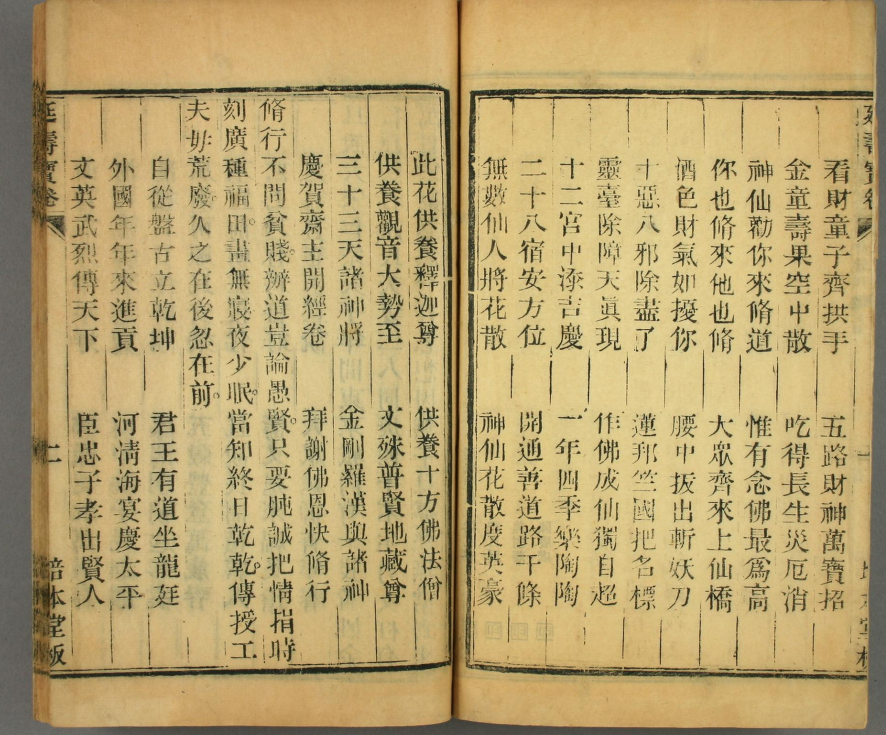 看財童子齊拱手　五路財神萬寶招
金童壽果空中散　吃得長生災厄消
神仙勸你來脩道　惟有念佛最為高
你也脩來他也脩　大眾齊來上仙橋
酒色財氣如擾你　腰中扳出斬妖刀
十惡八邪除盡了　蓮邦竺國把名標
靈臺除障天眞現　作佛成仙獨自超
十二宮中添吉慶　一年四季樂陶陶
二十八宿安方位　開通善道路千條
無數仙人將花散　神仙花散度英豪
此花供養釋迦尊　供養十方佛法僧
供養觀音大勢至　文殊普賢地藏尊
三十三天諸神將　金剛羅漢與諸神
慶賀齋主開經卷　拜謝佛恩快脩行
脩行不問貧賤。辦道豈論愚賢。只要肫誠把情捐。時
刻廣種福田。晝無寢夜少眠。當知終日乾乾。傳授工
夫毋荒廢。久之在後忽在前。
自從盤古立乾坤　君王有道坐龍廷
外國年年來進貢　河清海宴慶太平
文英武烈傳天下　臣忠子孝出賢人
延壽寶卷　二　培本堂板